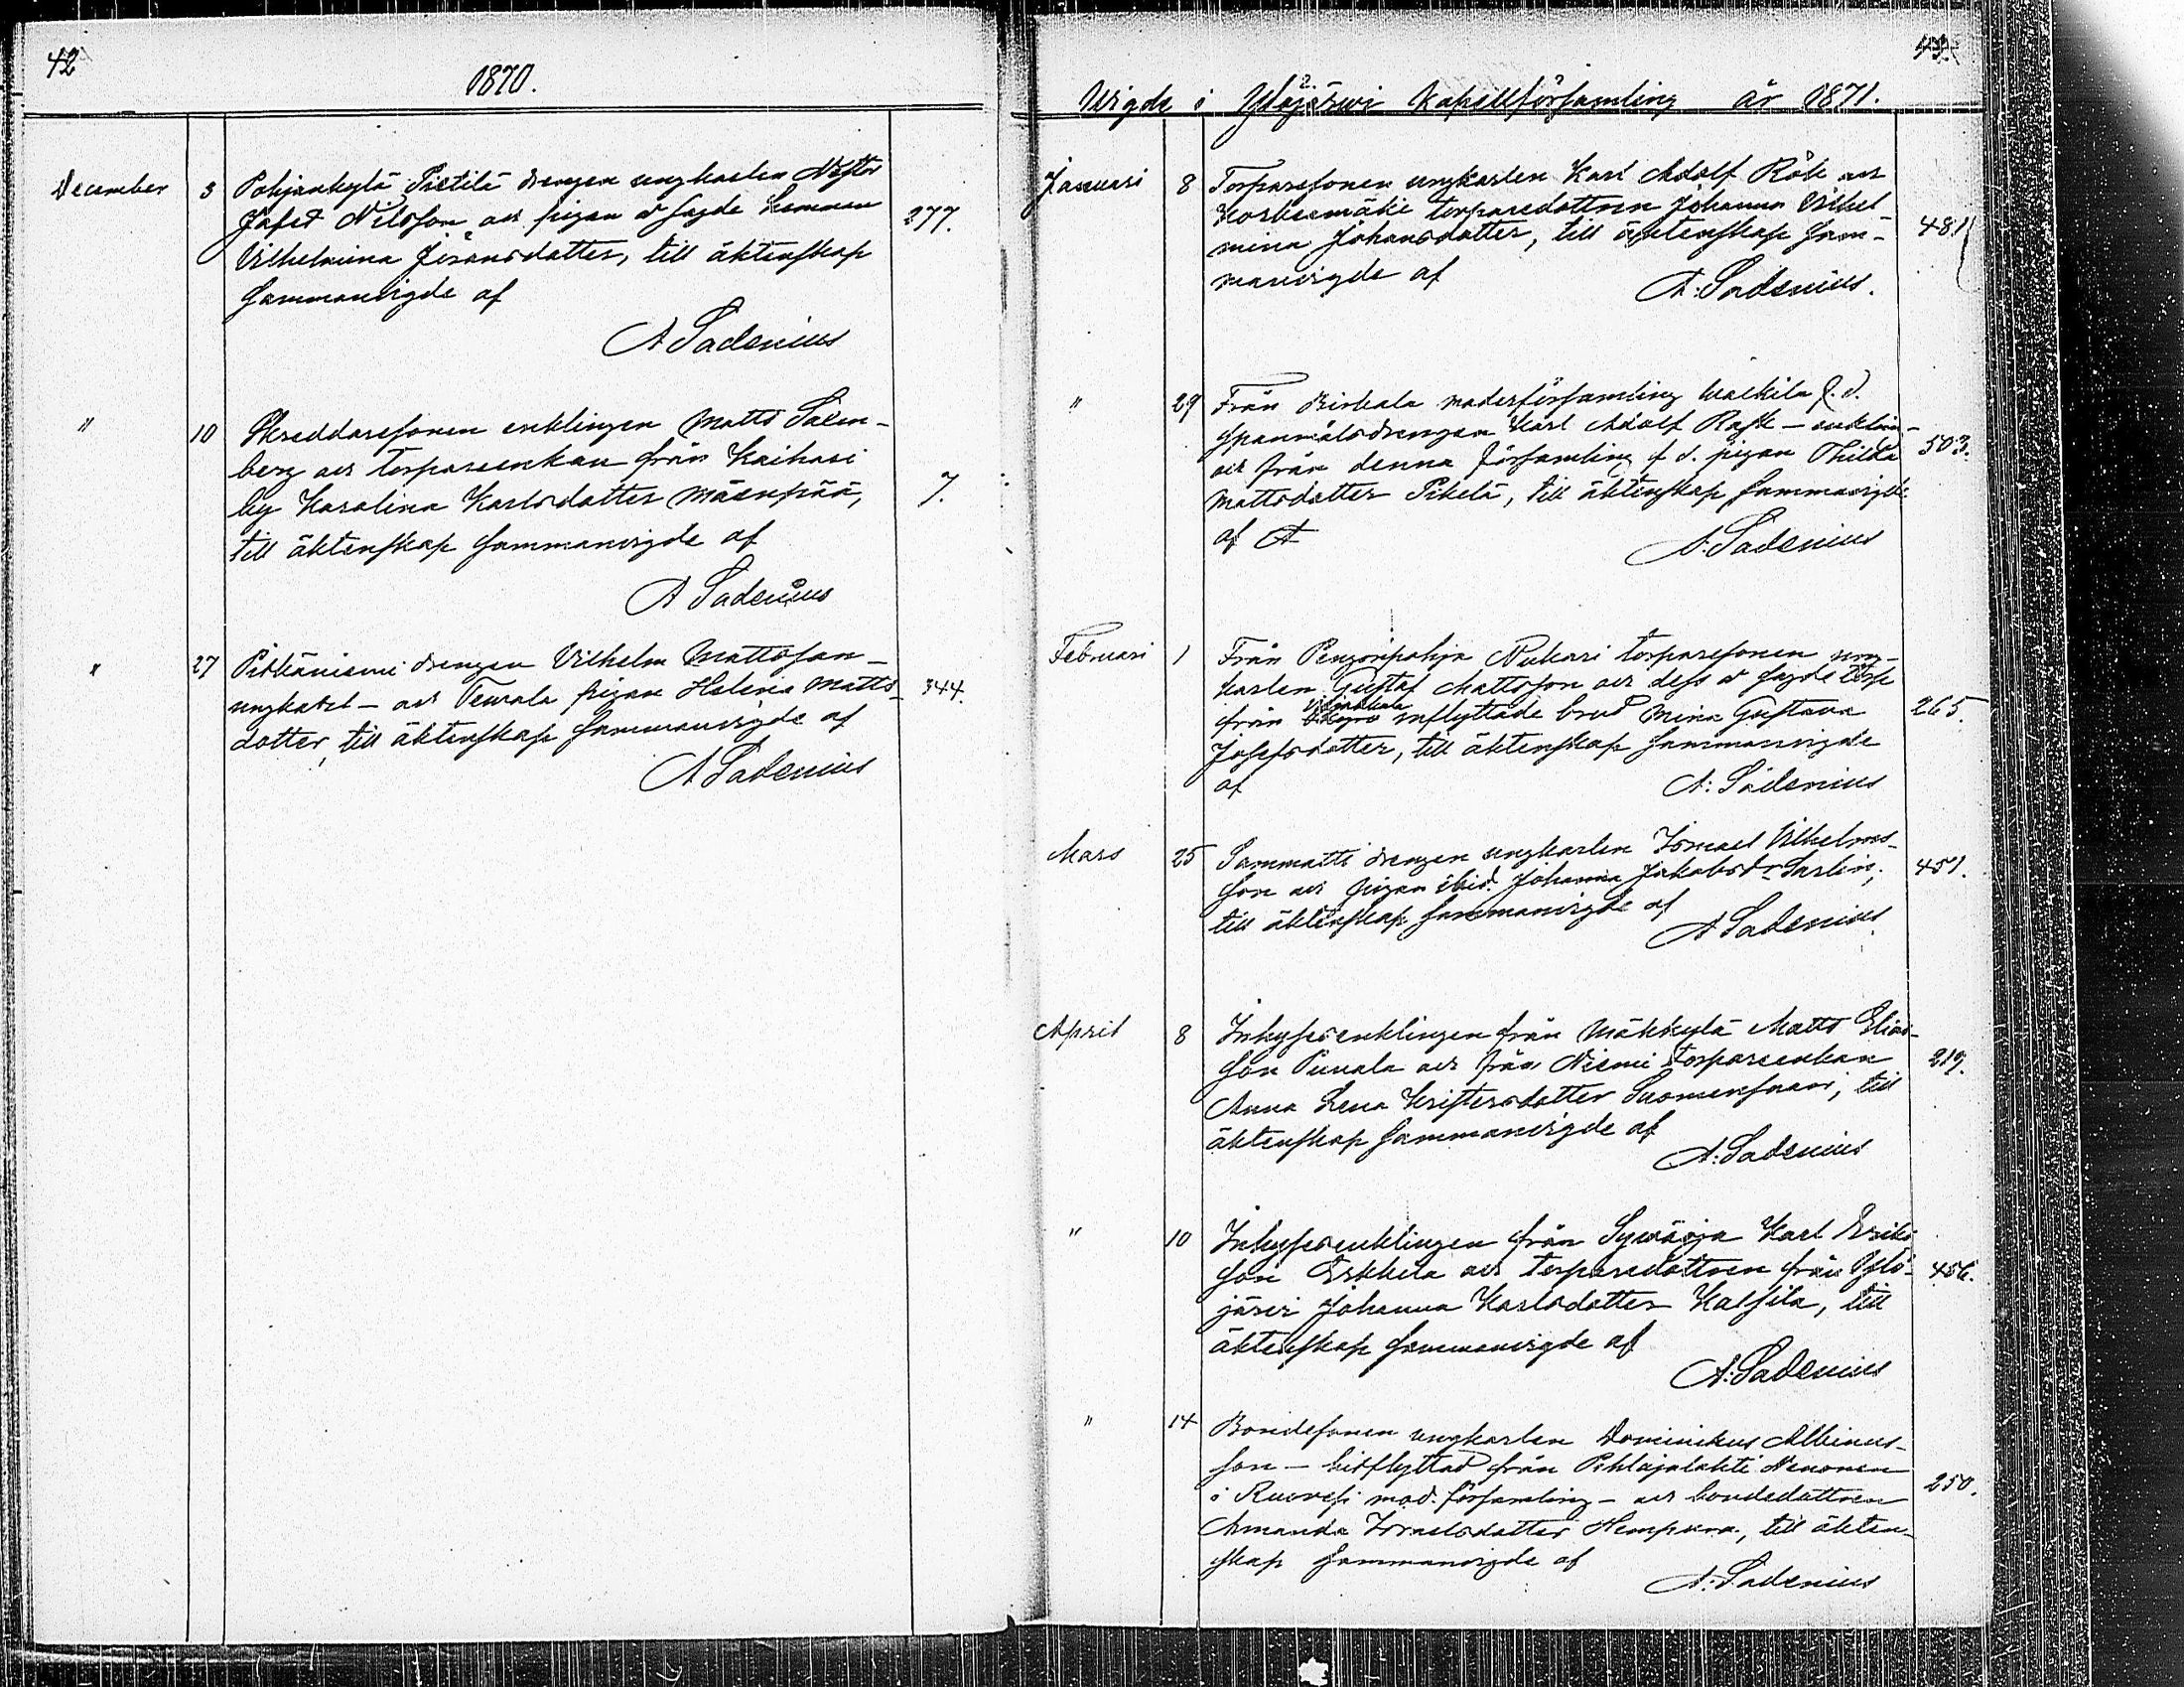 42
1870.
December 3 Pohjankylä Pietilä drengen ungkarlen Nestor
Jafet Nilsson och pigan v sagde hemman 277.
Vilhelmina Göransdotter, till äktenskap
sammanvigde af
A Sadenius
" 10 Skreddaresonen enklingen Matts Salen-
berg och torpareenkan från Kaihari
by Karolina Karlsdotter Mäenpää, 7.
till äktenskap sammanvigde af
A Sadenius
" 27 Pitkäniemi drengen Vilhelm Mattsson –
ungkarl – och pigan Helena Matts- 344.
dotter, till äktenskap sammanvigde af
A Sadenius
43.
Wigde i Ylöjärwi Kapellförsamling år 1871.
Januari 8 Torparesonen ungkarlen Karl Adolf Rök och
torparedottren Johanna Vilhel- 481
mina Johansdotter, till äktenskap sam-
manvigde af A: Sadenius.
" 29 Från Birkala moderförsamling f. d.
spanmålsdrengen Karl Adolf Rask – enkling –
och från denna församling f d. pigan Thilda 503.
Mattsdotter Pikelä, till äktenskap sammanvigde
af A
A. Sadenius
Februari 1 Från Pengonpohja torparesonen ung-
karlen Gustaf Mattsson och dess v sagde torp
från inflyttade brud Mina Gustava 265.
Josefsdotter, till äktenskap sammanvigde
af A: Sadenius
Mars 25 Sammatti drengen ungkarlen Ismael Vilhelms-
son och pigan ibid. Johanna Jakobsdr Sarlin, 451.
till äktenskap sammanvigde af
A Sadenius.
April 8 Inhysesenklingen från Mäkkylä Matts Elias-
son och från Niemi torpareenkan 219.
Anna Lena Kristersdotter, till
äktenskap sammanvigde af
A: Sadenius
" 10 Inhysesenklingen från Karl Eriks-
son Erkkilä och torparedottren från Ylö- 456.
järvi Johanna Karlsdotter, till
äktenskap sammanvigde af
A: Sadenius
" 14 Bondesonen ungkarlen Dominikus Albinus-
son – hitflyttad från Pihlajalahti
i Ruovesi mod. församling – och bondedottren 250.
Amanda Israelsdotter, till äkten-
skap sammanvigde af
A: Sadenius